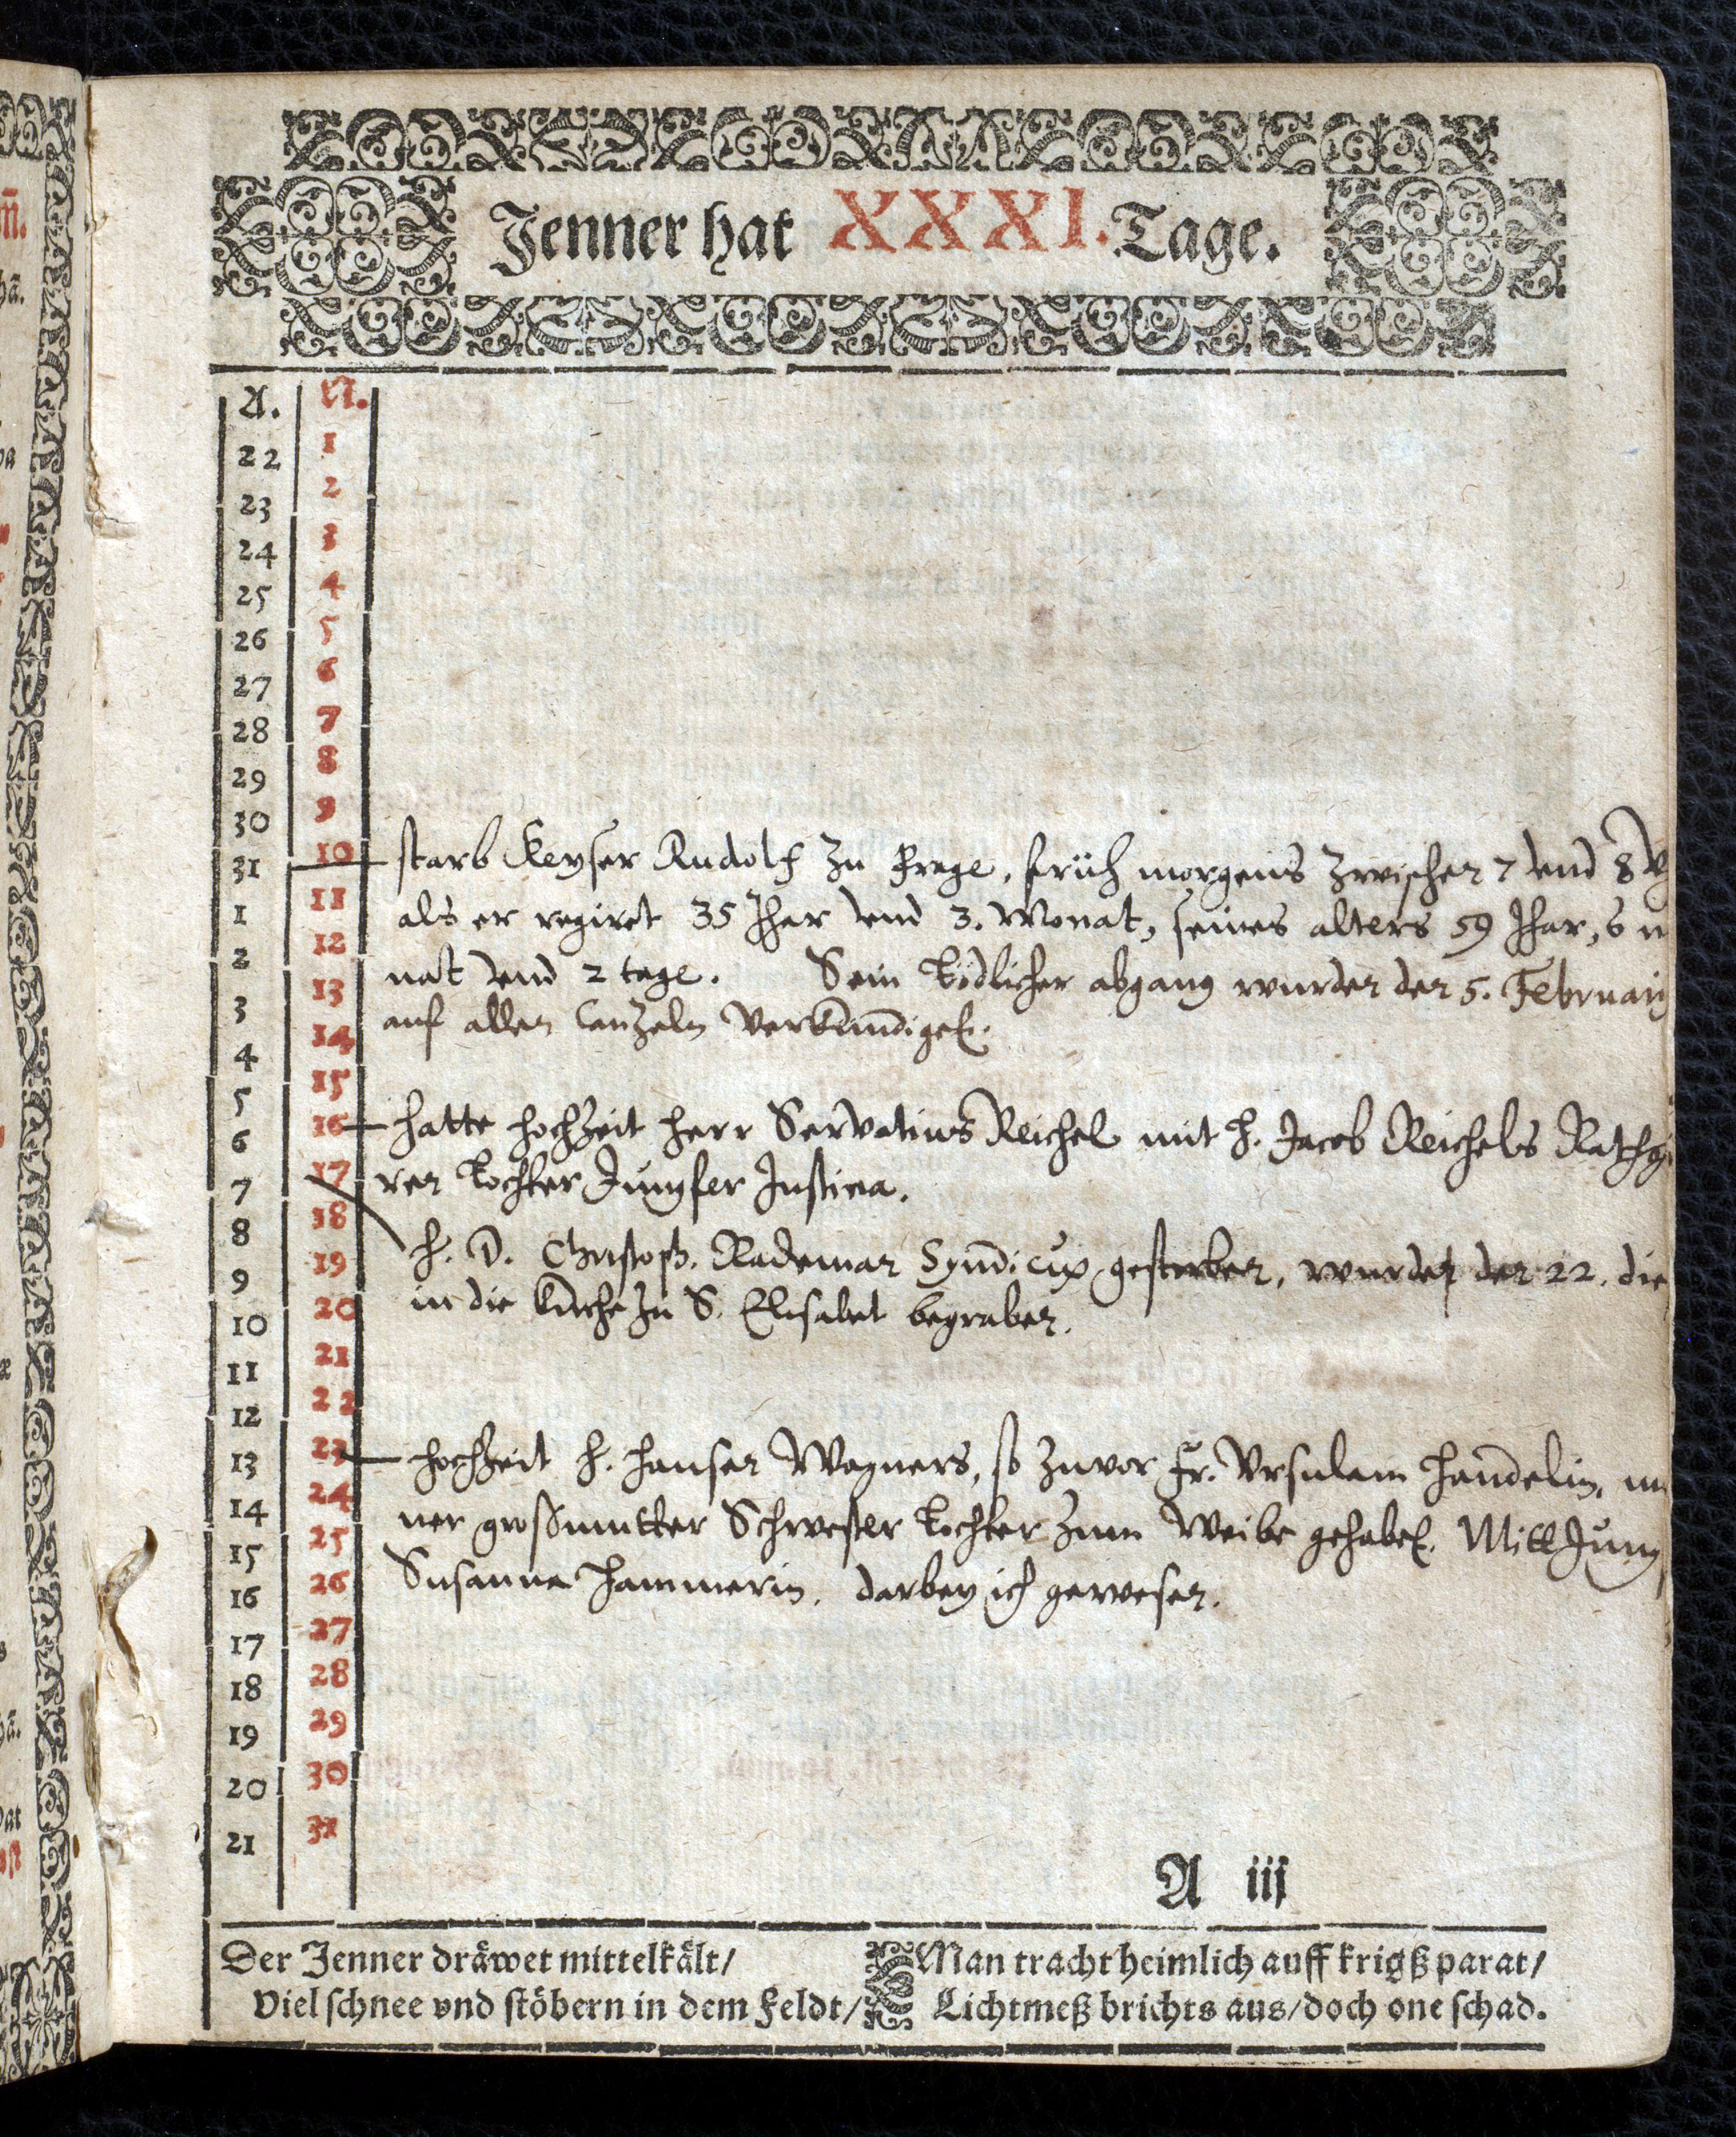 Jenner hat XXXI. Tage.
A. N.
22 1
23 2
24 3
25 4
26 5
27 6
28 7
29 8
30 9
31 10 starb Keyser Rudolf zu Prage, früh morgens zwischen 7 vnd 8 V
1 11 als er regiret 35 Jhar vnd 3. Monat, seines alters 59 Jhar, 6 m
2 12
3 13 nat vnd 2 tage. Sein tödlicher abgang wurden den 5. Februarij
4 14 auf allen Canzeln verkundiget.
5 15
6 16 hatte hochzeit herr Servatius Reichel mit h. Jacob Reichels Rathg
7 17 ren tochter Jungfer Justina.
8 18
9 19 h. D. Christoph. Rademar Syndicus gestorben, wurden den 22. die
10 20 in die kirche zu S. Elisabet begraben.
11 21
12 22
13 23 hochzeit h. hansen Wagners, so zuvor Fr. Vrsulam handelin, m
14 24 ner großmutter Schwester tochter zum Weibe gehabet. Mitt Jung
15 25
16 26 Susanna hammerin, darbey ich gewesen.
17 27
18 28
19 29
20 30
21 31
A iij
Der Jenner dräwet mittelkält/
Viel schnee vnd stöbern in dem Feldt/
Man tracht heimlich auff krigß parat/
Lichtmeß brichts aus/doch one schad.